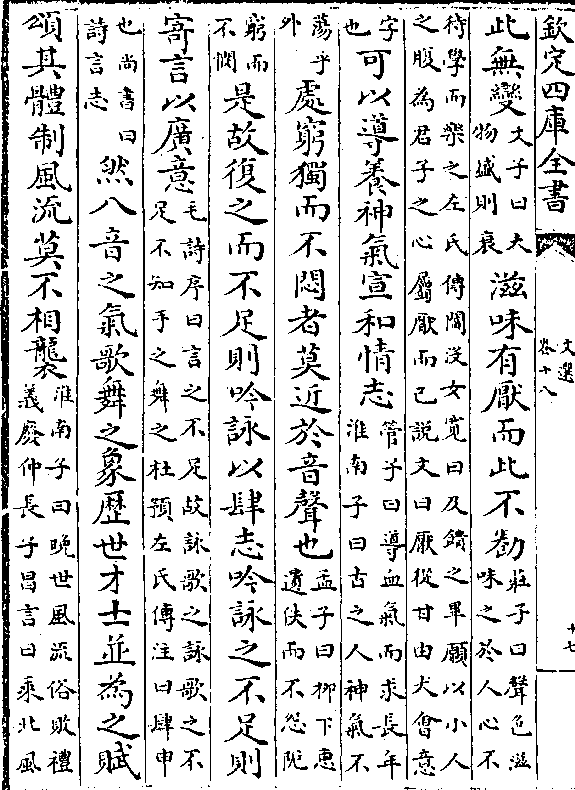 欽定四庫全書
文選
卷十八
十七
此無變
文子曰夫
物盛則衰
滋味有厭而此不勌
莊子曰聲色滋
味之於人心不
待學而樂之左氏傳閻没女寛曰及饋之畢願以小人
之腹為君子之心屬厭而已說文曰厭從甘由犬會意
字
也
可以導養神氣宣和情志
管子曰導血氣而求長年
淮南子曰古之人神氣不
蕩乎
外
處窮獨而不悶者莫近於音聲也
孟子曰柳下惠
遺佚而不怨阨
窮而
不憫
是故復之而不足則吟詠以肆志吟詠之不足則
寄言以廣意
毛詩序曰言之不足故詠歌之詠歌之不
足不知手之舞之杜預左氏傳注曰肆申
也尚書曰
詩言志
然八音之氣歌舞之象歷世才士並為之賦
頌其體制風流莫不相襲
淮南子曰晚世風流俗敗禮
義廢仲長子昌言曰乗北風